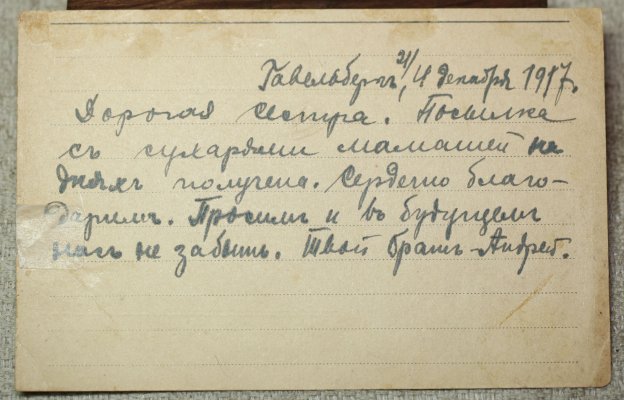 Гавельбергъ, 21/4 декабря 1917.
Дорогая сестра. Посылка
съ сухарями мамашей на
дняхъ получена. Сердечно благо-
даримъ. Просимъ и въ будущемъ
насъ не забыть. Твой братъ Андрей.